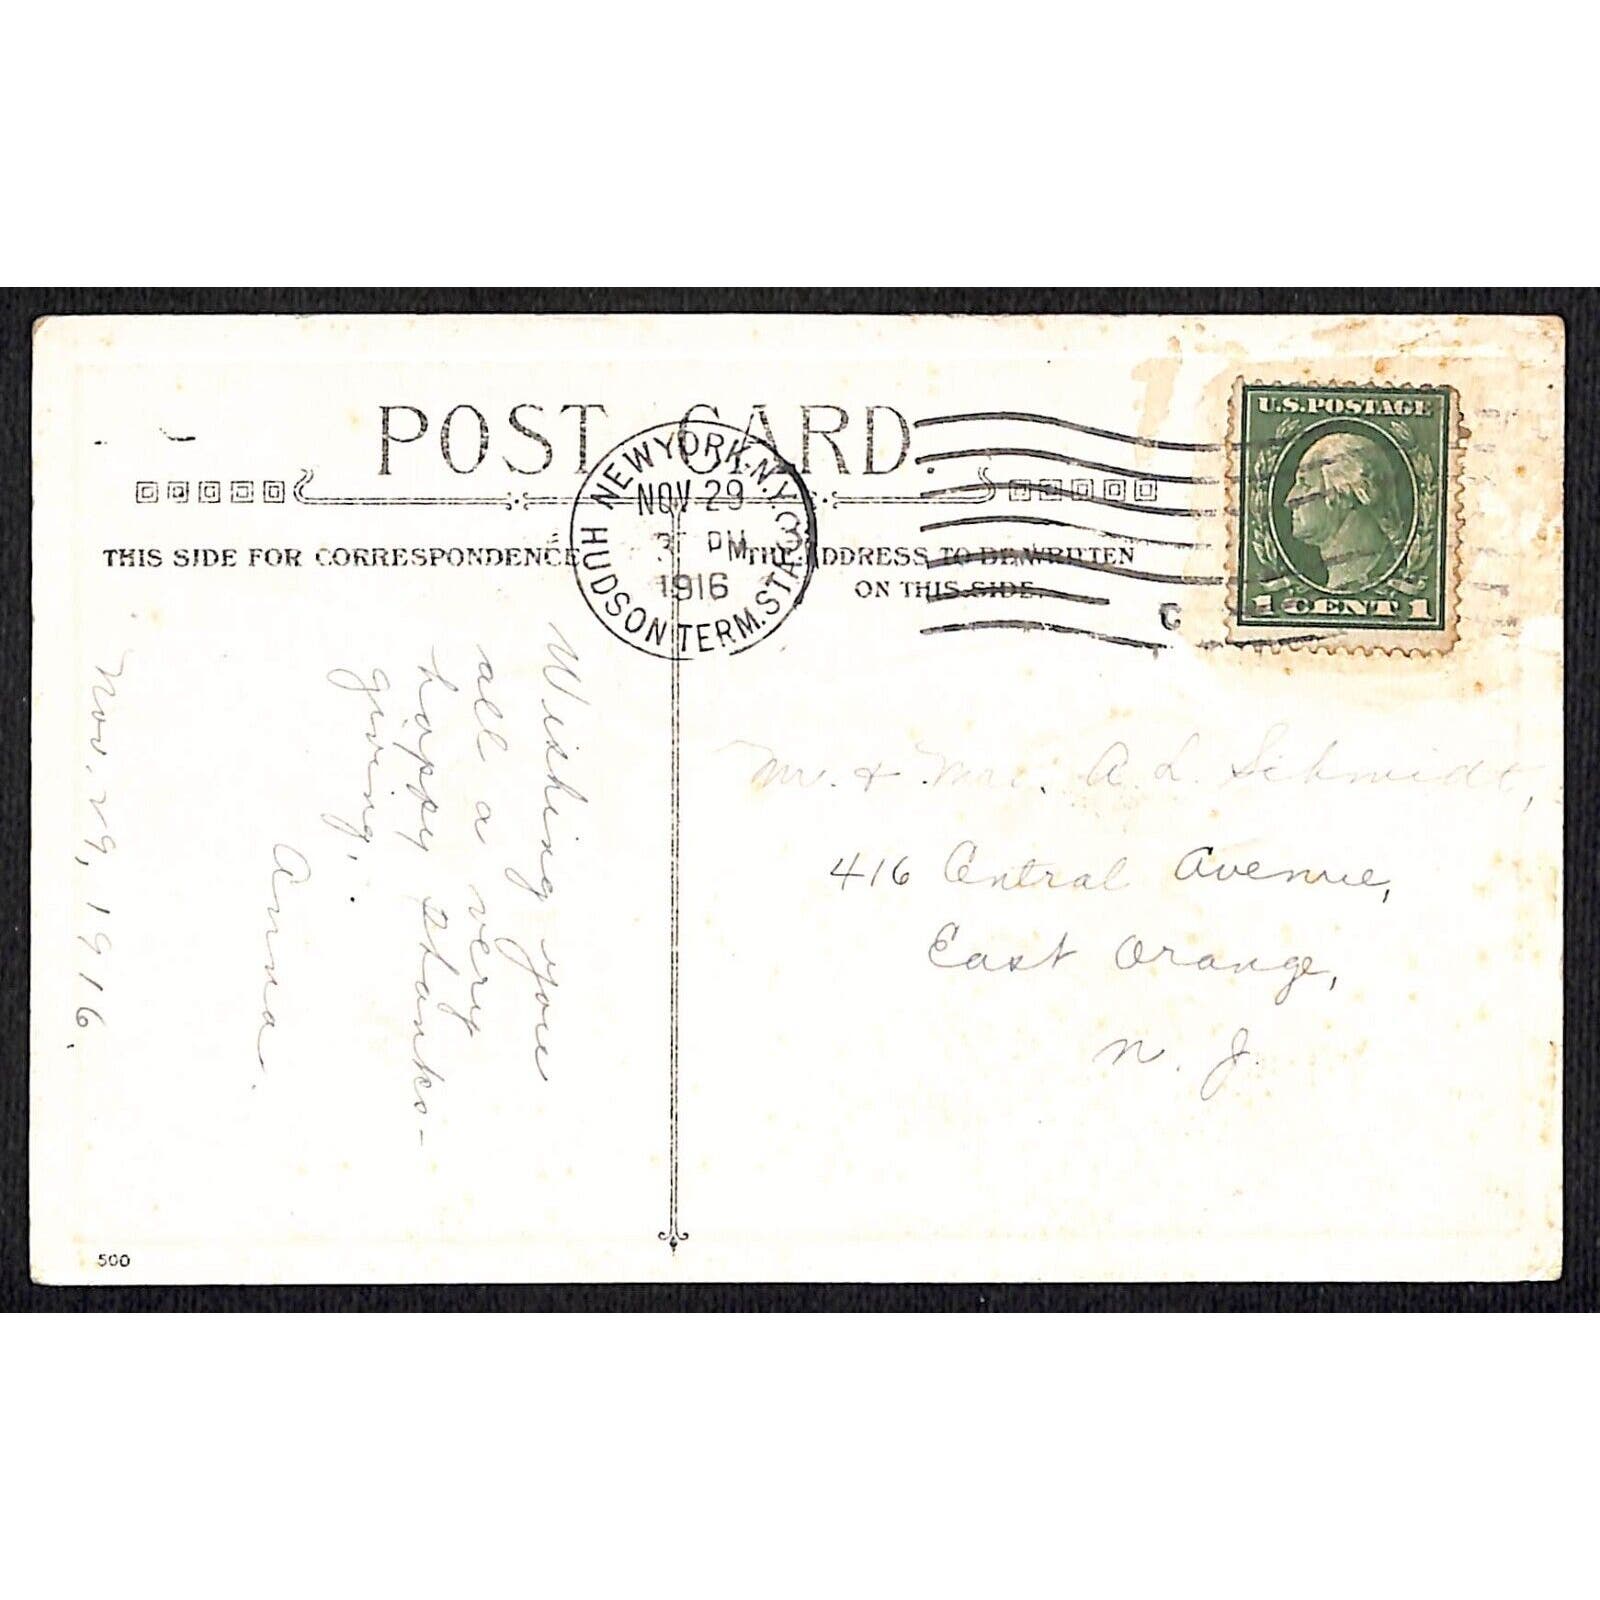 POST CARD.
THIS SIDE FOR CORRESPONDENCE
THE ADDRESS TO BE WRITTEN
ON THIS SIDE.
NEW YORK, N.Y.
HUDSON TERM. STA.
3
NOV 29
PM
1916
U.S. POSTAGE
1 CENT 1
C
Nov. 29, 1916.
Wishing you
all a very
happy thanks-
giving.
Anna.
Mr. & Mrs. A. L. Schmidt,
416 Central Avenue,
East Orange,
N. J.
500